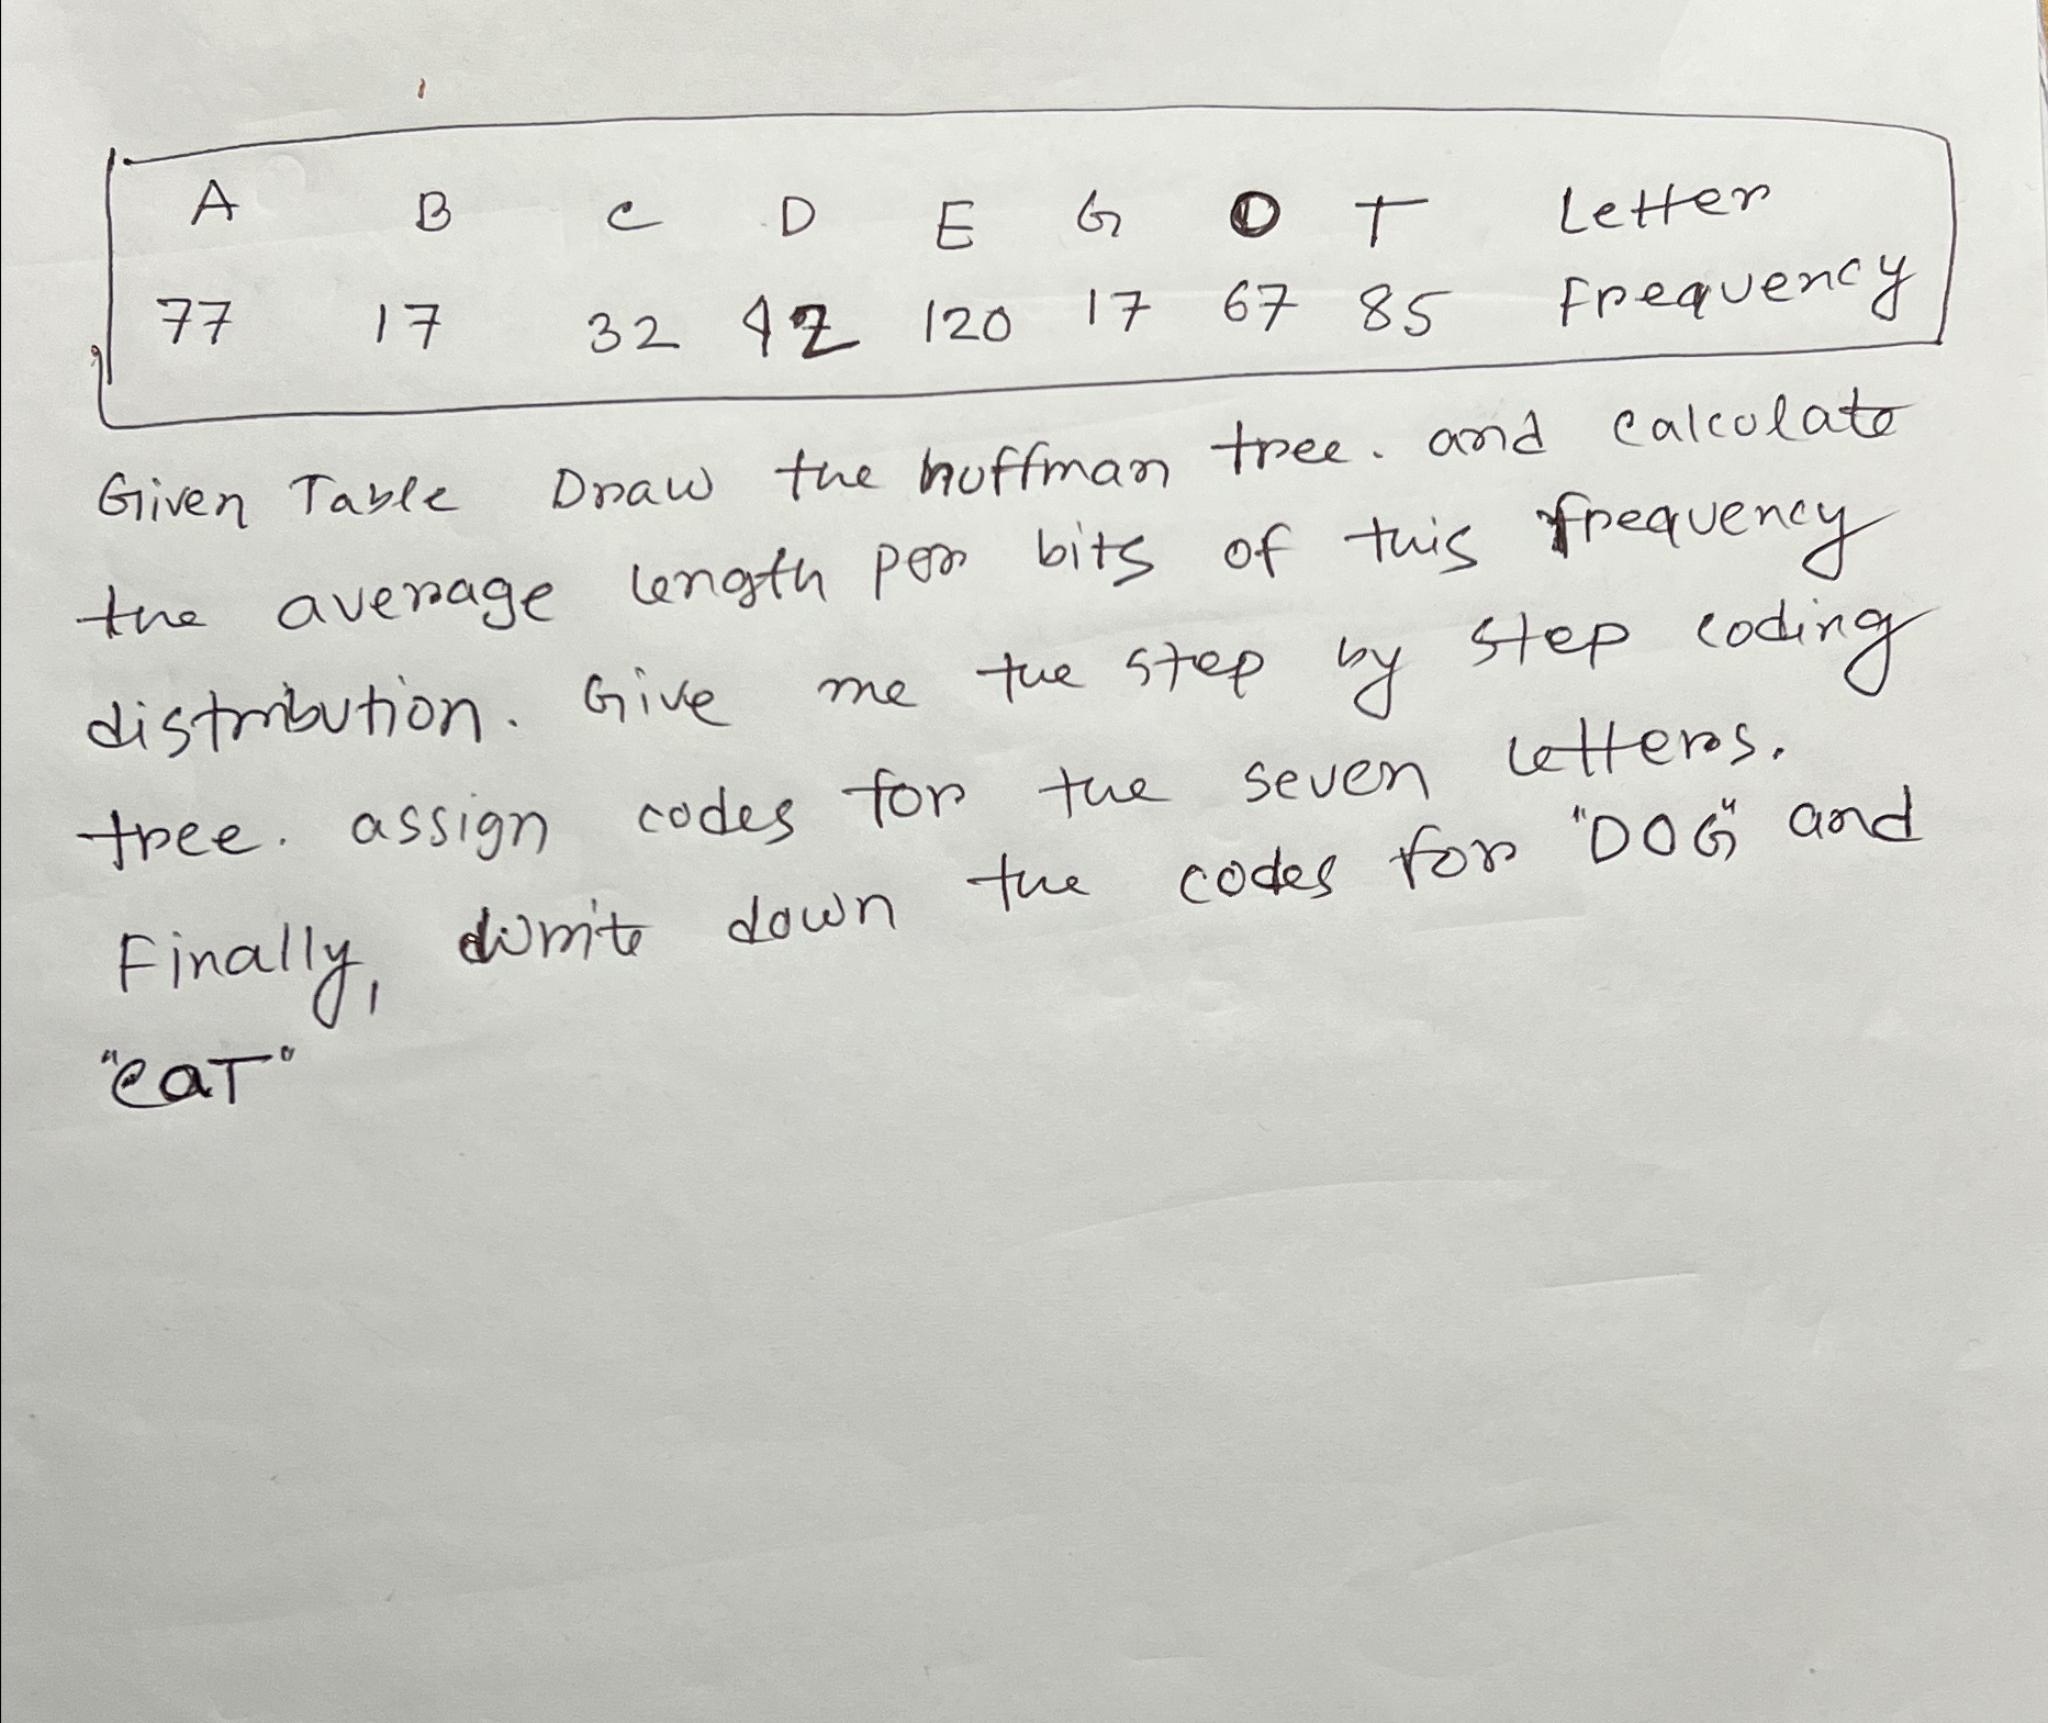 A B C D E G O T Letter
77 17 32 42 120 17 67 85 Frequency
Given Table Draw the huffman tree. and calculate
the average length per bits of this frequency
distribution. Give me the step by step coding
tree. assign codes for the seven letters.
Finally, write down the codes for "DOG" and
"CaT"